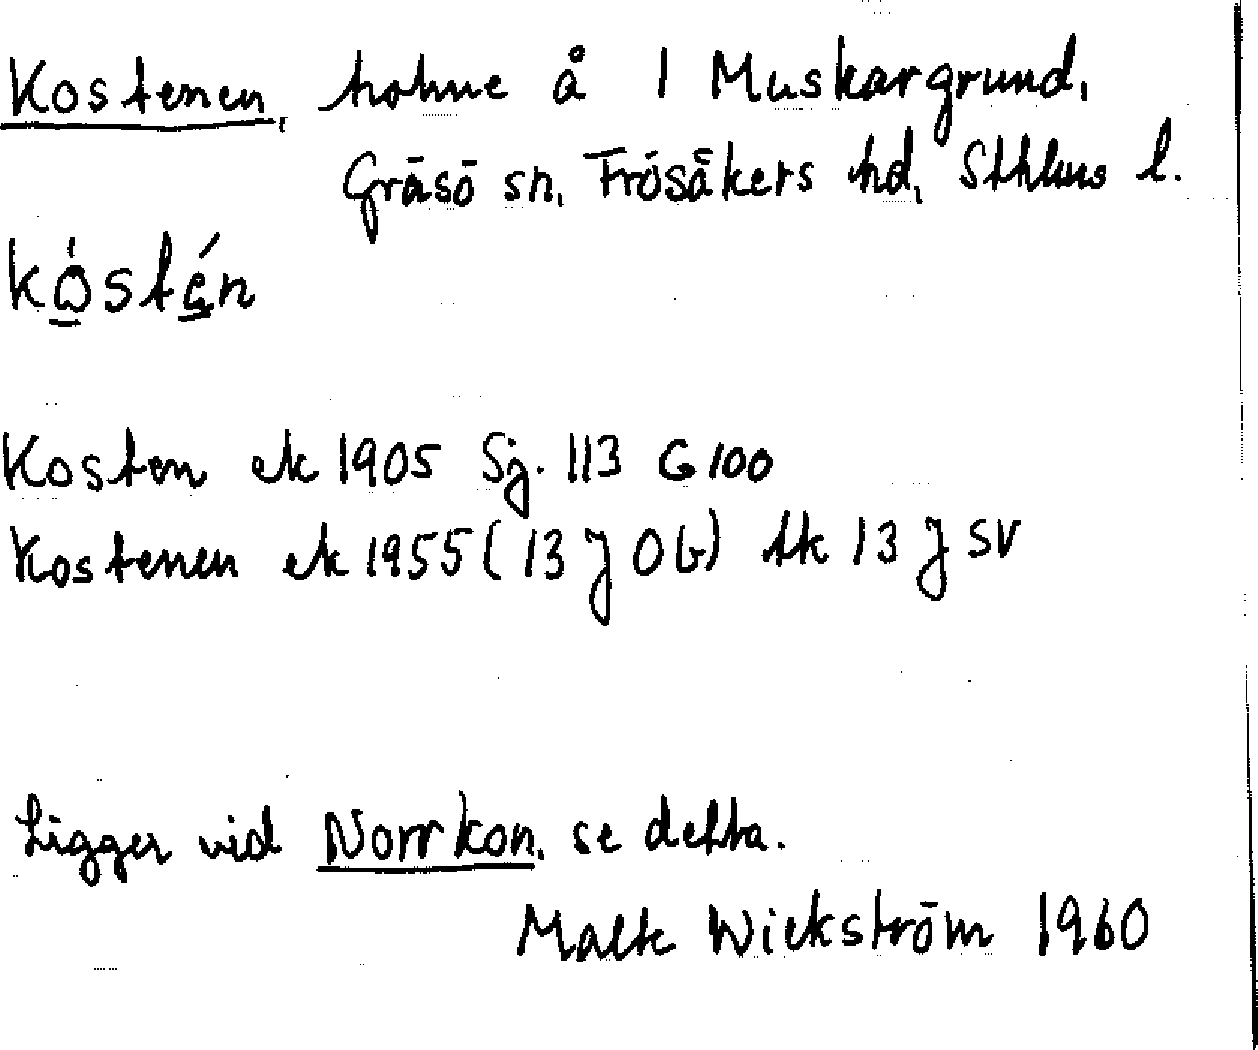 Kostenen, holme å 1 Muskargrund,
Gräsö sn, Frösåkers hd, Sthlms l.
kóstén
Kosten ek 1905 Sj. 113 G 100
Kostenen ek 1955 (13 J 0 b) tk 13 J SV
Ligger vid Norrkon, se detta.
Malte Wickström 1960